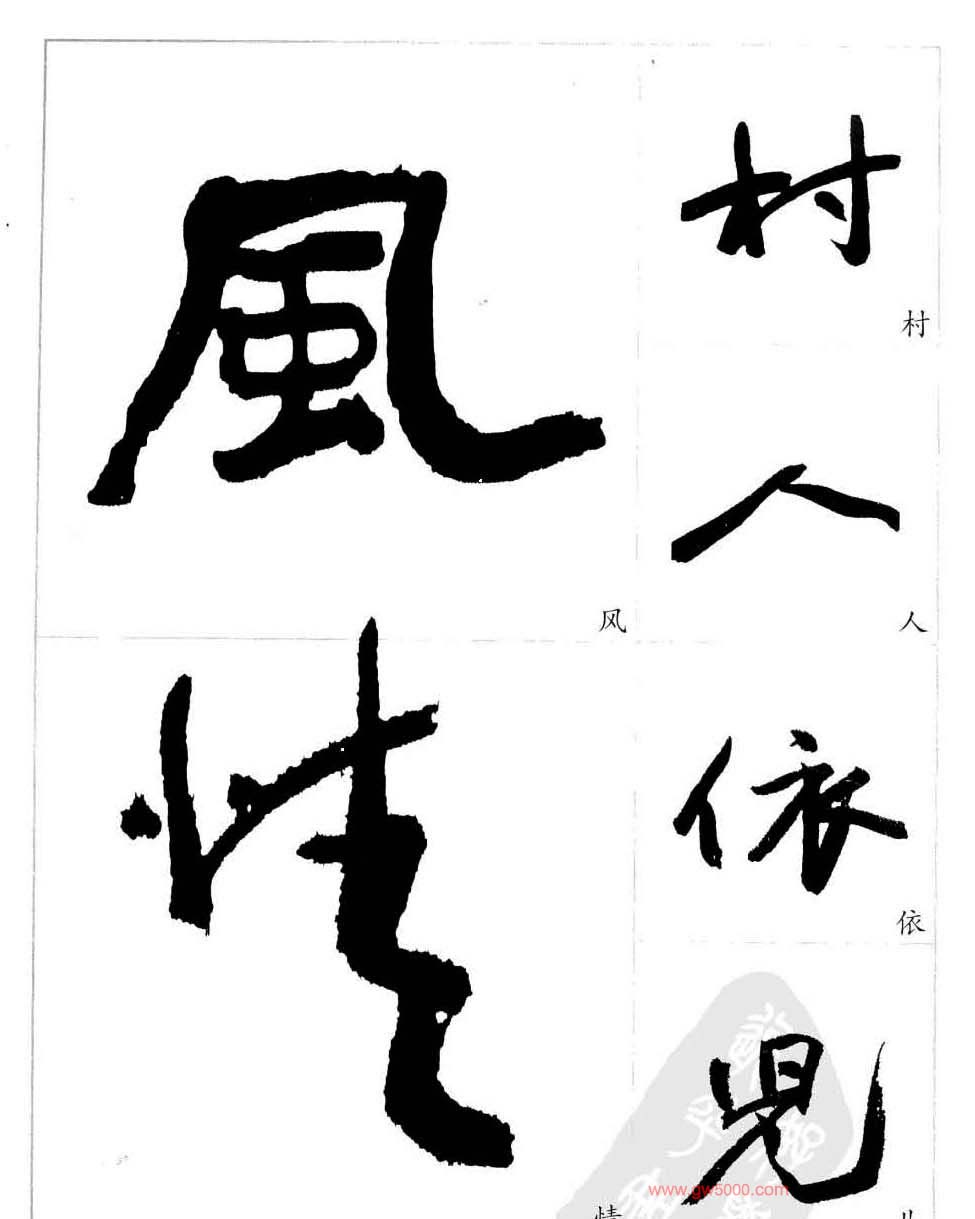 風
风
情
情
村
村
人
人
依
依
兒
儿
www.gw5000.com